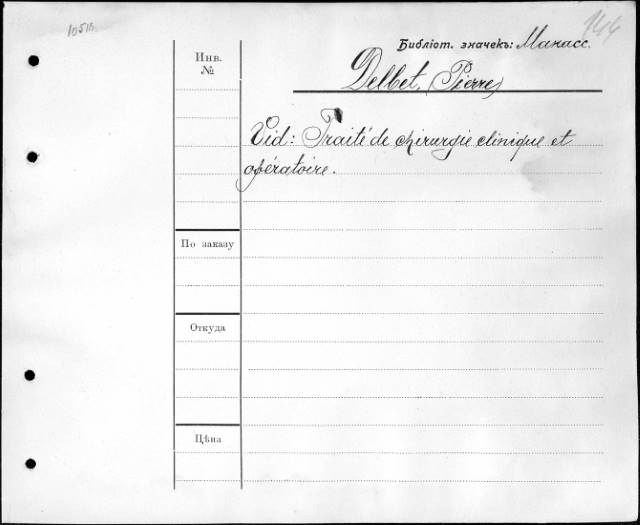 144
Библіот. значекъ: Манасс.
Инв.
№
Delbet, (Pierre)
Vid: Traité de chirurgie clinique et
opératoire.
По заказу
Откуда
Цѣна